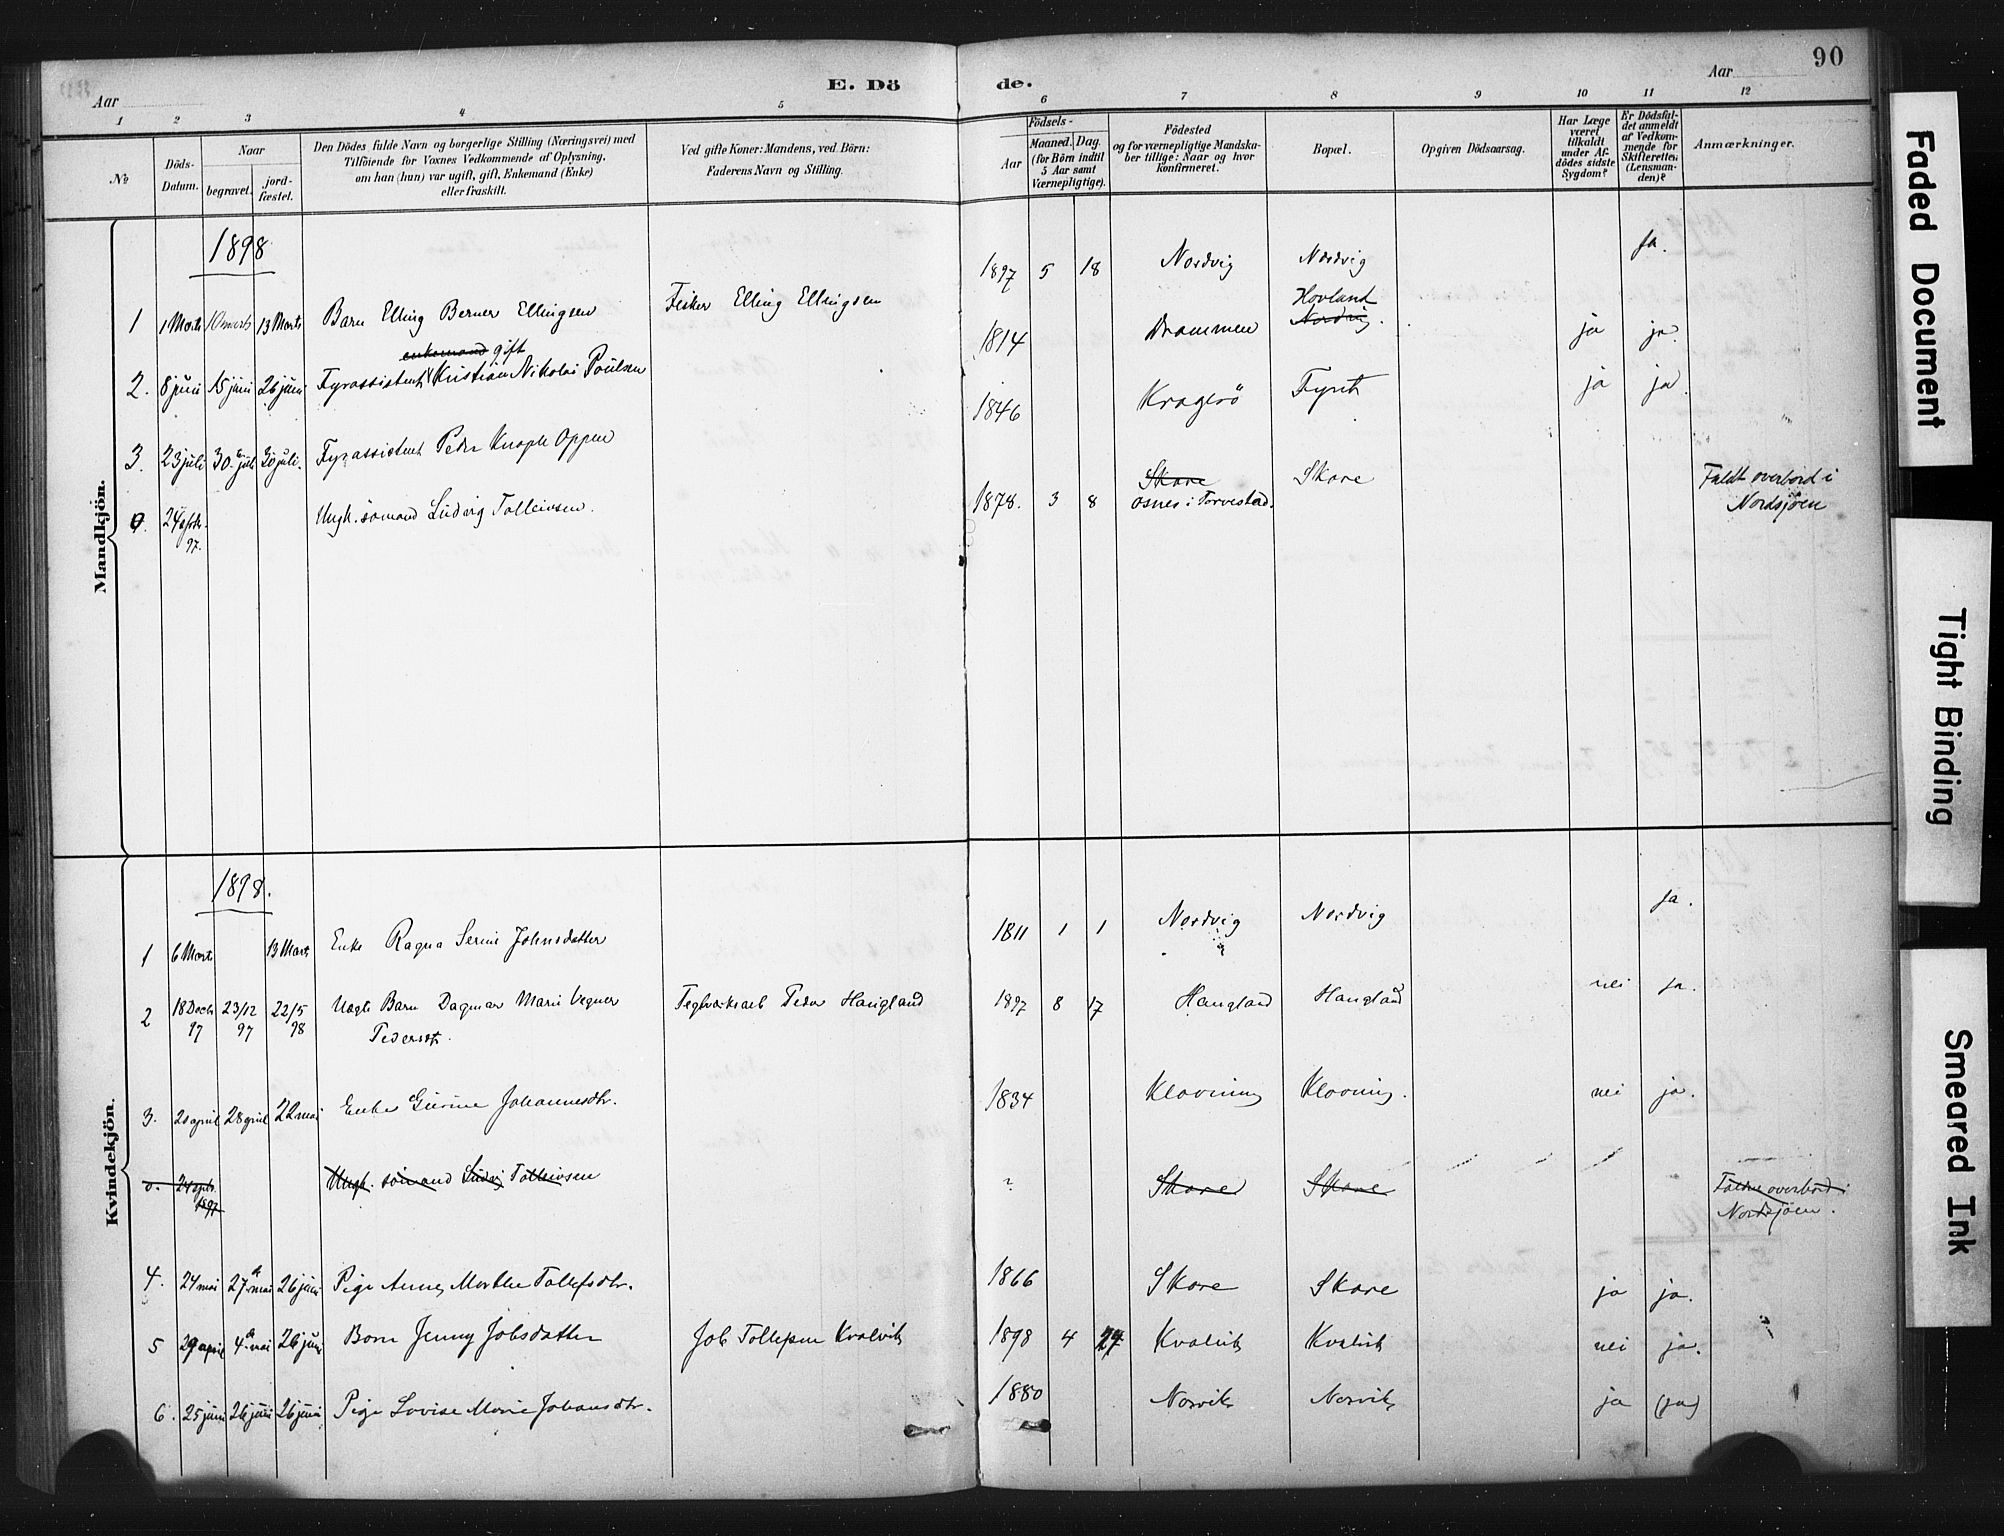 90
Aar
E. Dö
de.
Aar
1 2 3 4 5 6 7 8 9 10 11 12
No
Döds-Datum.
Naar
begravet.
jord-fæstet.
Den Dödes fulde Navn og borgerlige Stilling (Næringsvei) med
Tilföiende for Voxnes Vedkommende af Oplysning,
om han (hun) var ugift, gift, Enkemand (Enke)
eller fraskilt.
Ved gifte Koner: Mandens, ved Börn:
Faderens Navn og Stilling.
Födsels-
Aar
Maaned. Dag.
(for Börn indtil
5 Aar samt
Værnepligtige).
Födested
og for værnepligtige Mandska-
ber tillige: Naar og hvor
konfirmeret.
Bopæl.
Opgiven Dödsaarsag.
Har Læge
været
tilkaldt
under Af-
dödes sidste
Sygdom?
Er Dödsfal-
det anmeldt
af Vedkom-
mende for
Skifteretten
(Lensman-
den)?
Anmærkninger.
Mandkjön.
1898
1 1 Marts 10 marts 13 Marts Barn Elling Berner Ellingsen Fisker Elling Ellingsen 1897 5 18 Nordvig Nordvig ja.
enkemand gift
2. 8 juni 15 juni 26 juni Fyrassistent Kristian Nikolai Poulsen 1814 Drammen Hovland Nordvig. ja ja.
3. 23 juli 30 juli 30 juli. Fyrassistent Peder Knoph Oppen 1846 Kragerö Fyret ja ja.
24 97. Ungk. sömand Ludvig Tolleivsen. 1878. 3 8 Skare Skare Faldt overbord i
osnes i Torvestad. Nordsjöen
Kvindekjön.
1898.
1 6 Mart 13 Marts Enke Ragna Serine Johnsdatter 1811 1 1 Nordvig Nordvig ja.
2 18 Decb 97 23/12 97 22/5 98 Uægte Barn Dagmar Marie Vegner Teglværksarb Peder Haugland 1897 8 17 Haugland Haugland nei ja.
Pedersdt.
3. 20 april 28 april 22 mai Enke Gurine Johannesdtr. 1834 Klovning Klovning. nei ja.
0. 24 1897 Ungk. sömand Ludvig Tolleivsen ? Skare Skare Faldt overbord i
Nordsjöen.
4. 24 mai 27 mai 26 juni Pige Anne Marthe Tollefsdtr. 1866 Skare Skare ja ja.
5 29 april 4 mai 26 juni Barn Jenny Jobsdatter Job Tollefsen Kvalvik 1898 4 27 Kvalvik Kvalvik nei ja.
6. 25 juni 26 juni 26 juni Pige Lovise Marie Johansdtr. 1880 Norvik Norvik ja (ja)
Faded Document
Tight Binding
Smeared Ink